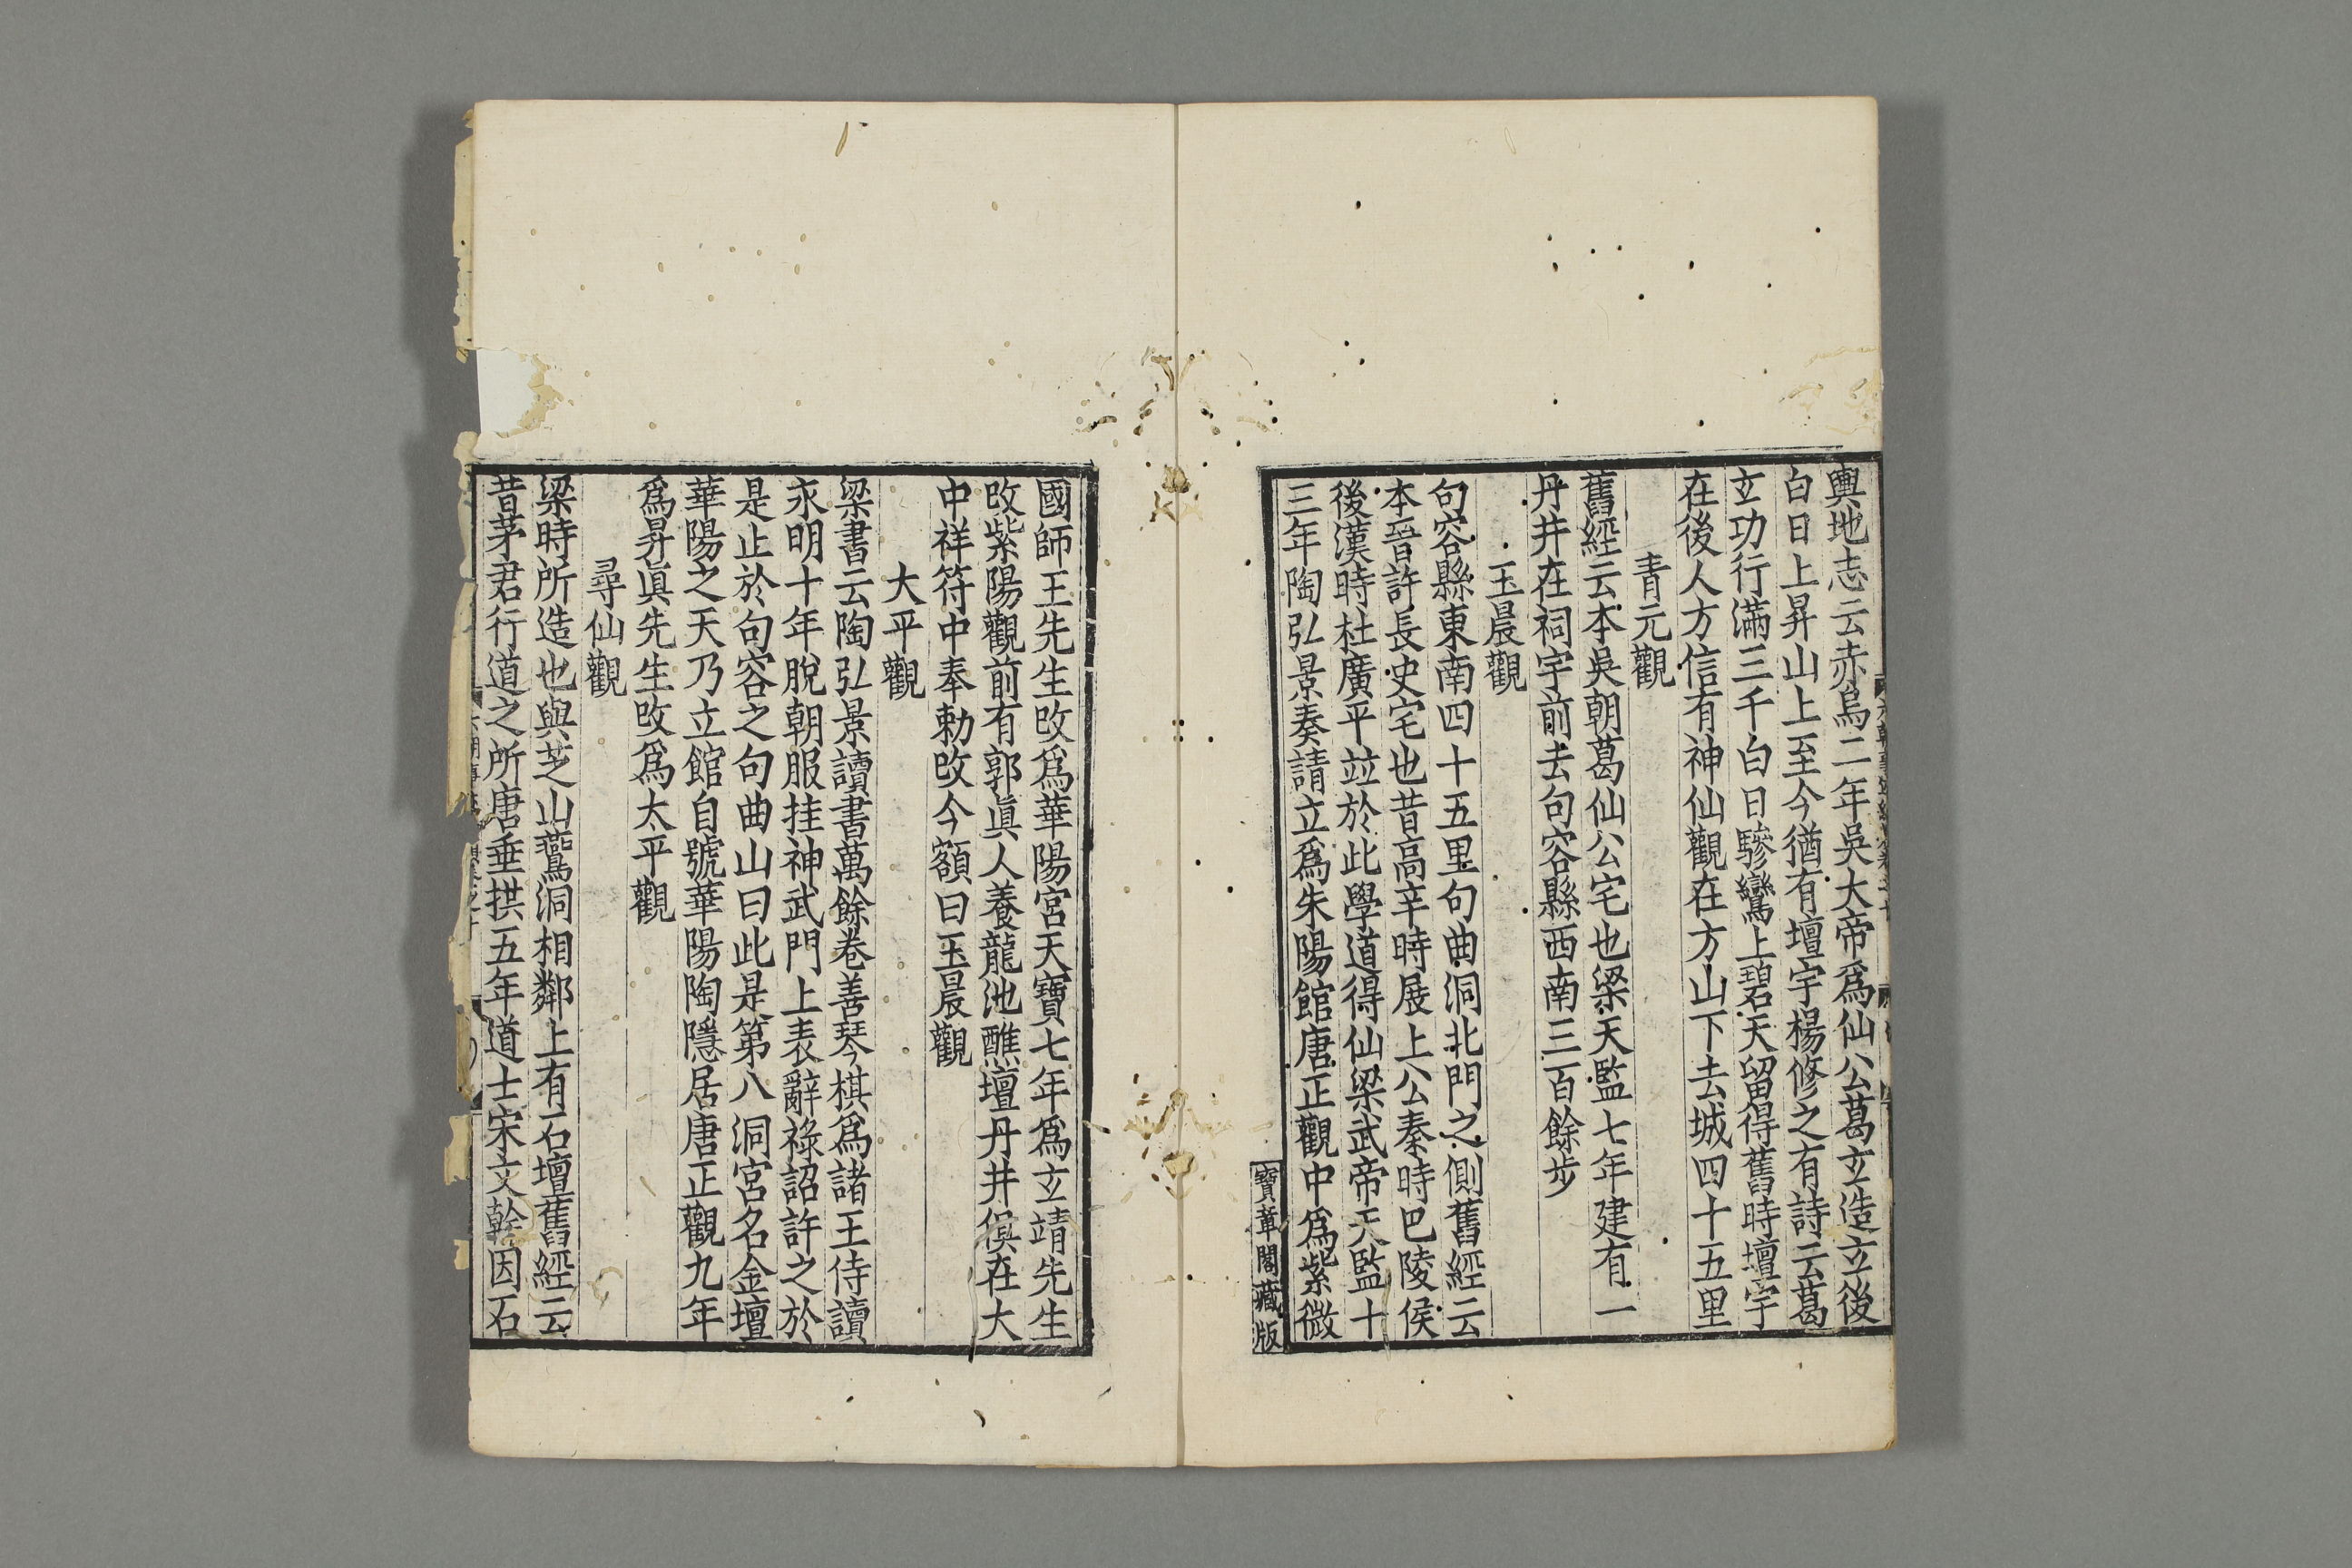 輿地志云赤烏二年吳大帝爲仙公葛玄造立後
白日上昇山上至今猶有壇宇楊修之有詩云葛
玄功行滿三千白日驂鸞上碧天留得舊時壇宇
在後人方信有神仙觀在方山下去城四十五里
青元觀
舊經云本吳朝葛仙公宅也梁天監七年建有一
丹井在祠宇前去句容縣西南三百餘步
玉晨觀
句容縣東南四十五里句曲洞北門之側舊經云
本晉許長史宅也昔高辛時展上公秦時巴陵侯
後漢時杜廣平竝於此學道得仙梁武帝天監十
三年陶弘景奏請立爲朱陽館唐正觀中爲紫微
寶章閣藏版
國師王先生改爲華陽宮天寶七年爲玄靖先生
改紫陽觀前有郭眞人養龍池醮壇丹井俱在大
中祥符中奉勅改今額曰玉晨觀
大平觀
梁書云陶弘景讀書萬餘卷善琴棋爲諸王侍讀
永明十年脫朝服挂神武門上表辭祿詔許之於
是止於句容之句曲山曰此是第八洞宮名金壇
華陽之天乃立館自號華陽陶隱居唐正觀九年
爲昇眞先生改爲太平觀
尋仙觀
梁時所造也與芝山鷰洞相鄰上有石壇舊經云
昔茅君行道之所唐垂拱五年道士宋文幹因石